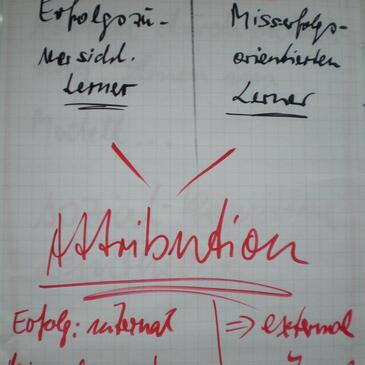 Erfolgszu-
versichtl.
Lerner
Misserfolgs-
orientierten
Lerner
Attribution
Erfolg: internal
⇒ external